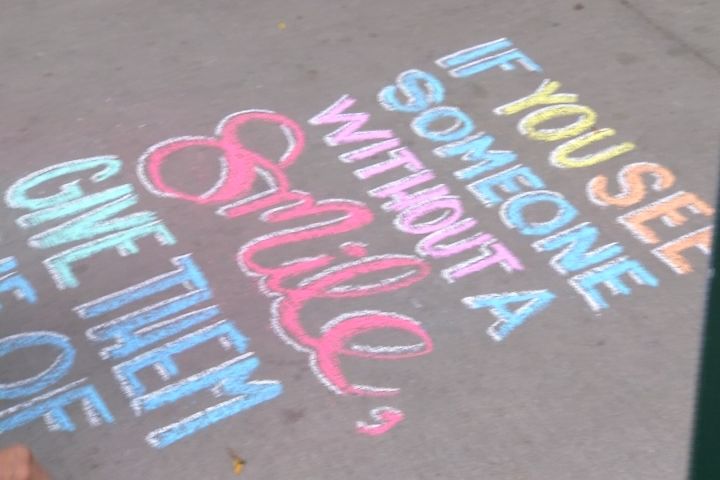 IF YOU SEE
SOMEONE
WITHOUT A
Smile,
GIVE THEM
OF